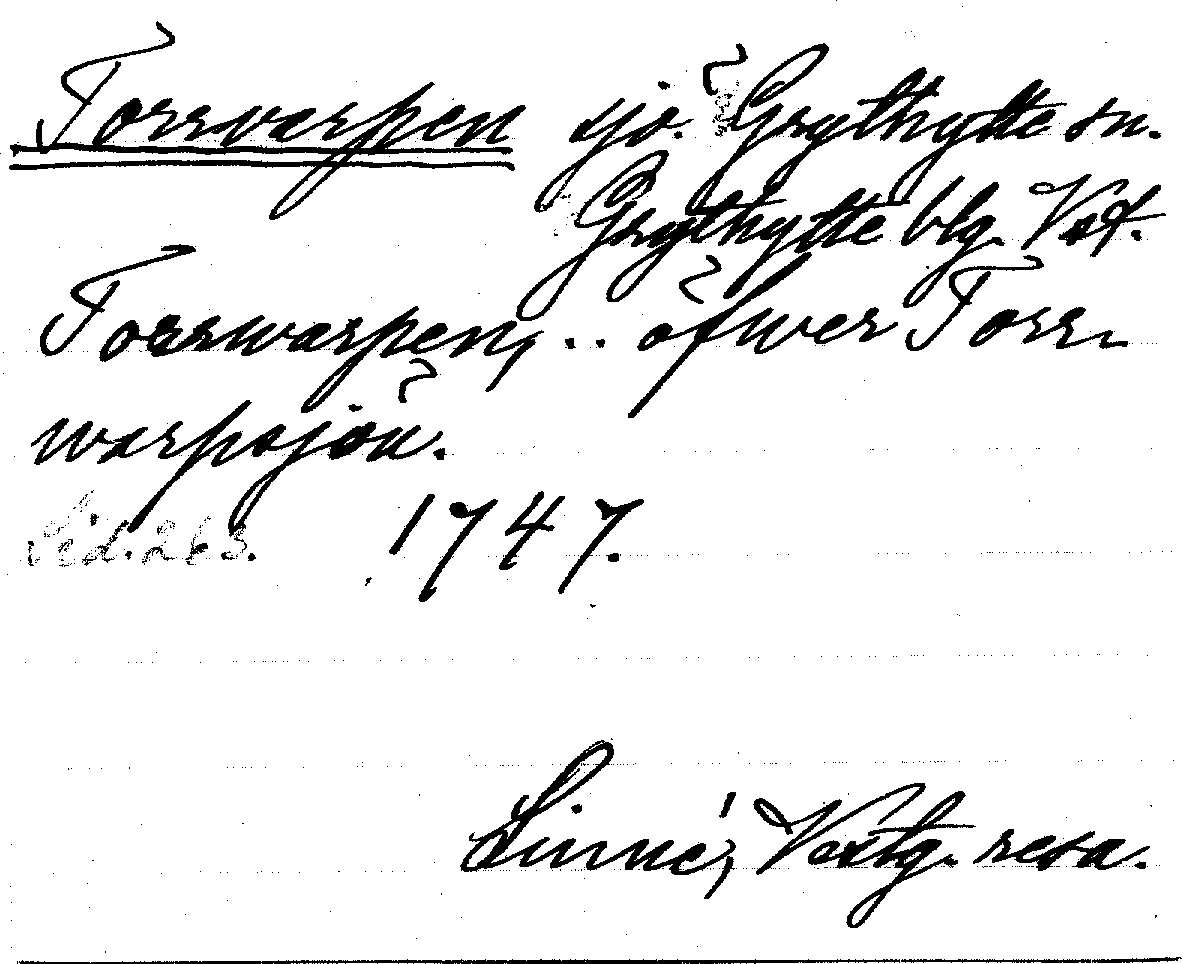 Torrvarpen sjö. Grythytte sn.
Grythytte blg. Vstm.
Torrwarpen, .. öfwer Torr-
warpsjön.
Sid. 263. 1747.
Linné, Vestg. resa.